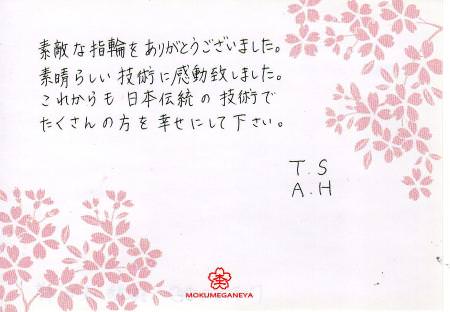 素敵な指輪をありがとうございました。
素晴らしい技術に感動致しました。
これからも日本伝統の技術で
たくさんの方を幸せにして下さい。
T.S
A.H
MOKUMEGANEYA